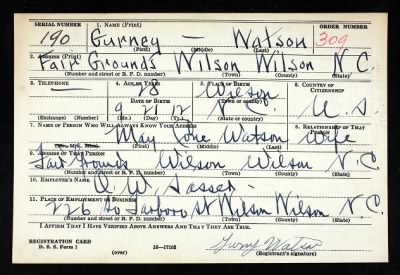 SERIAL NUMBER 1. NAME (Print) ORDER NUMBER
190 Gurney — Watson 309
(First) (Middle) (Last)
2. ADDRESS (Print)
Fair Grounds Wilson Wilson N.C.
(Number and street or R. F. D. number) (Town) (County) (State)
3. TELEPHONE 4. AGE IN YEARS 5. PLACE OF BIRTH 6. COUNTRY OF CITIZENSHIP
— Wilson
DATE OF BIRTH (Town or county)
9 21 12 N.C. U.S.
(Exchange) (Number) (Mo.) (Day) (Yr.) (State or country)
7. NAME OF PERSON WHO WILL ALWAYS KNOW YOUR ADDRESS 8. RELATIONSHIP OF THAT PERSON
May Watson Wife
(Mr., Mrs., Miss) (First) (Middle) (Last)
9. ADDRESS OF THAT PERSON
Fair Grounds Wilson Wilson N.C.
(Number and street or R. F. D. number) (Town) (County) (State)
10. EMPLOYER'S NAME
W. Sasser
11. PLACE OF EMPLOYMENT OR BUSINESS
226 So Tarboro St Wilson Wilson N.C.
(Number and street or R. F. D. number) (Town) (County) (State)
I AFFIRM THAT I HAVE VERIFIED ABOVE ANSWERS AND THAT THEY ARE TRUE.
REGISTRATION CARD
D. S. S. Form 1 16—17105 Gurney Watson
(over) (Registrant's signature)